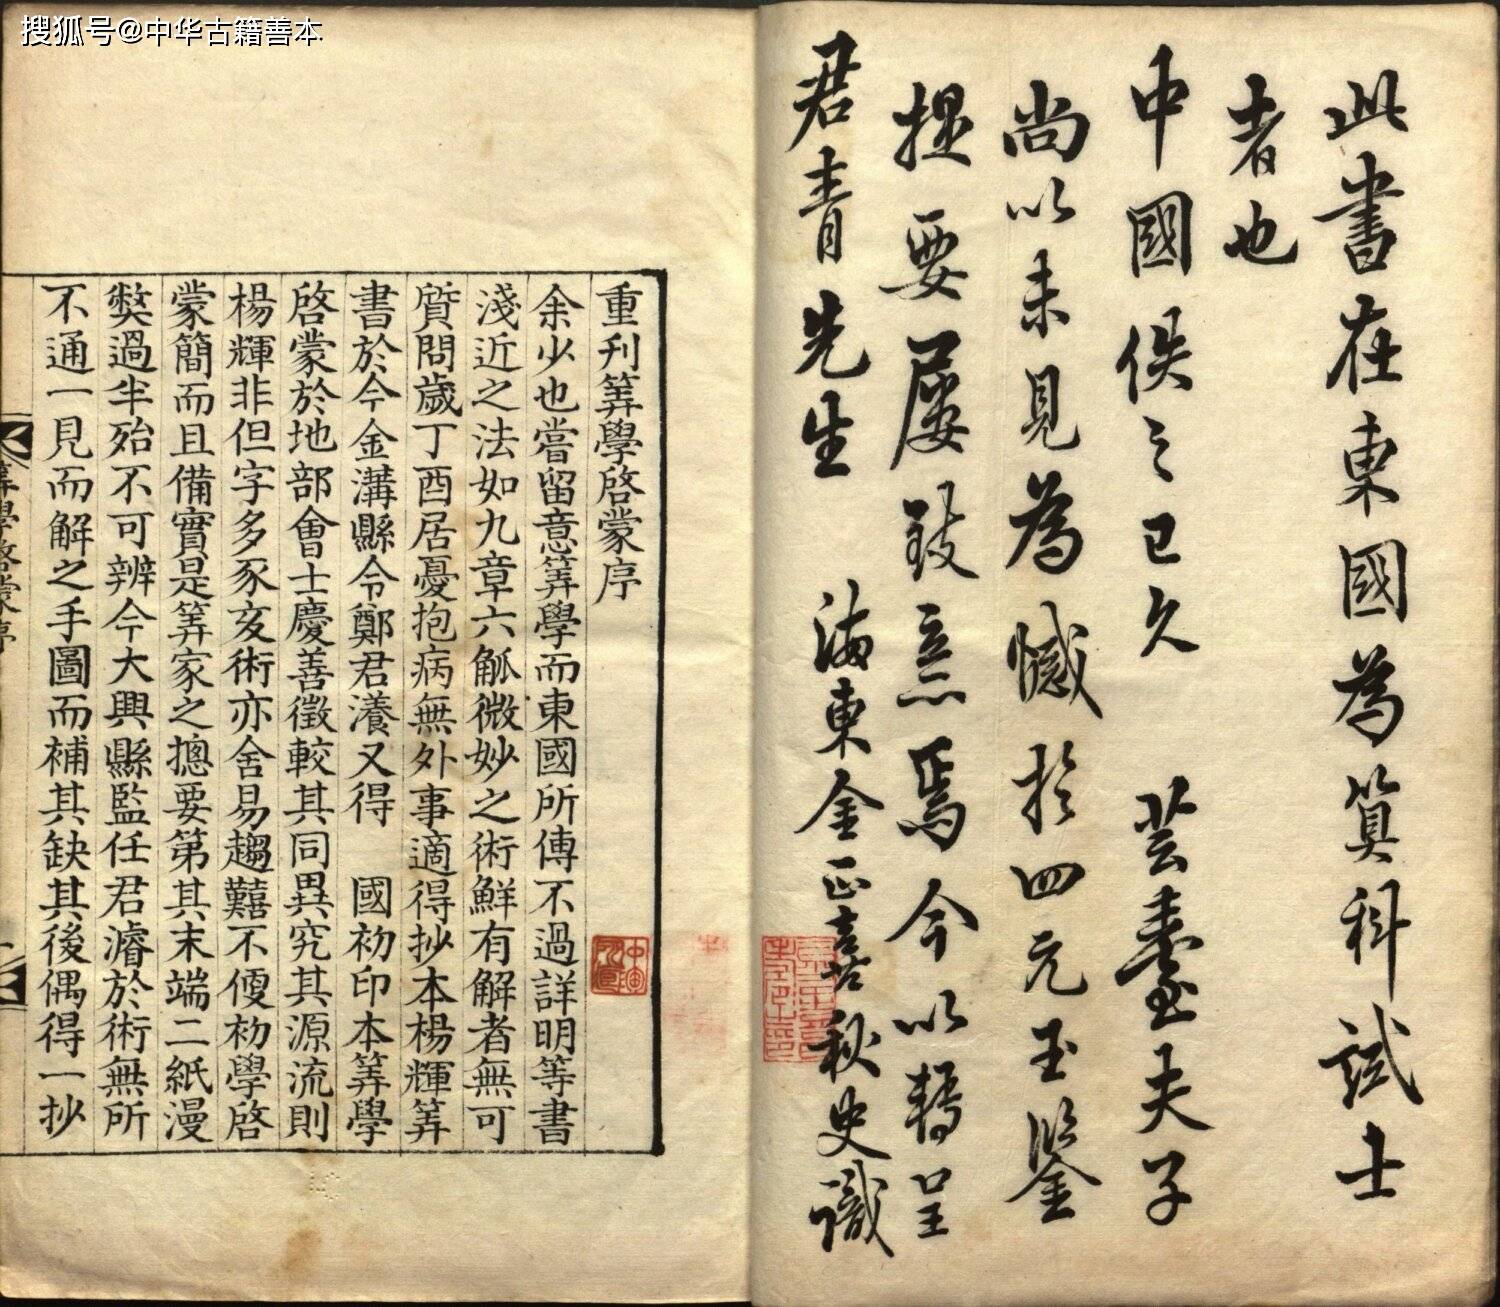 搜狐号@中华古籍善本
此書在東國為算科試士
者也
中國佚之已久 芸臺夫子
尚以未見為憾於四元玉鑒
提要屢致意焉今以轉呈
君青先生 海東金正喜秋史識
重刊筭學啓蒙序
余少也嘗留意筭學而東國所傳不過詳明等書
淺近之法如九章六觚微妙之術鮮有解者無可
質問歲丁酉居憂抱病無外事適得抄本楊輝筭
書於今金溝縣令鄭君瀁又得 國初印本筭學
啓蒙於地部會士慶善徵較其同異究其源流則
楊輝非但字多豕亥術亦舍易趨囏不便初學啓
蒙簡而且備實是筭家之摠要第其末端二紙漫
獘過半殆不可辨今大興縣監任君濬於術無所
不通一見而解之手圖而補其缺其後偶得一抄
筭學啓蒙序